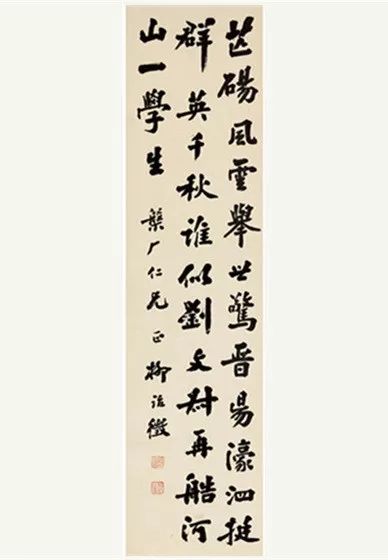 芒碭風雲舉世驚晉昜濠泗挺
群英千秋誰似劉文叔再艁河
山一學生
槃厂仁兄 正 柳詒徵